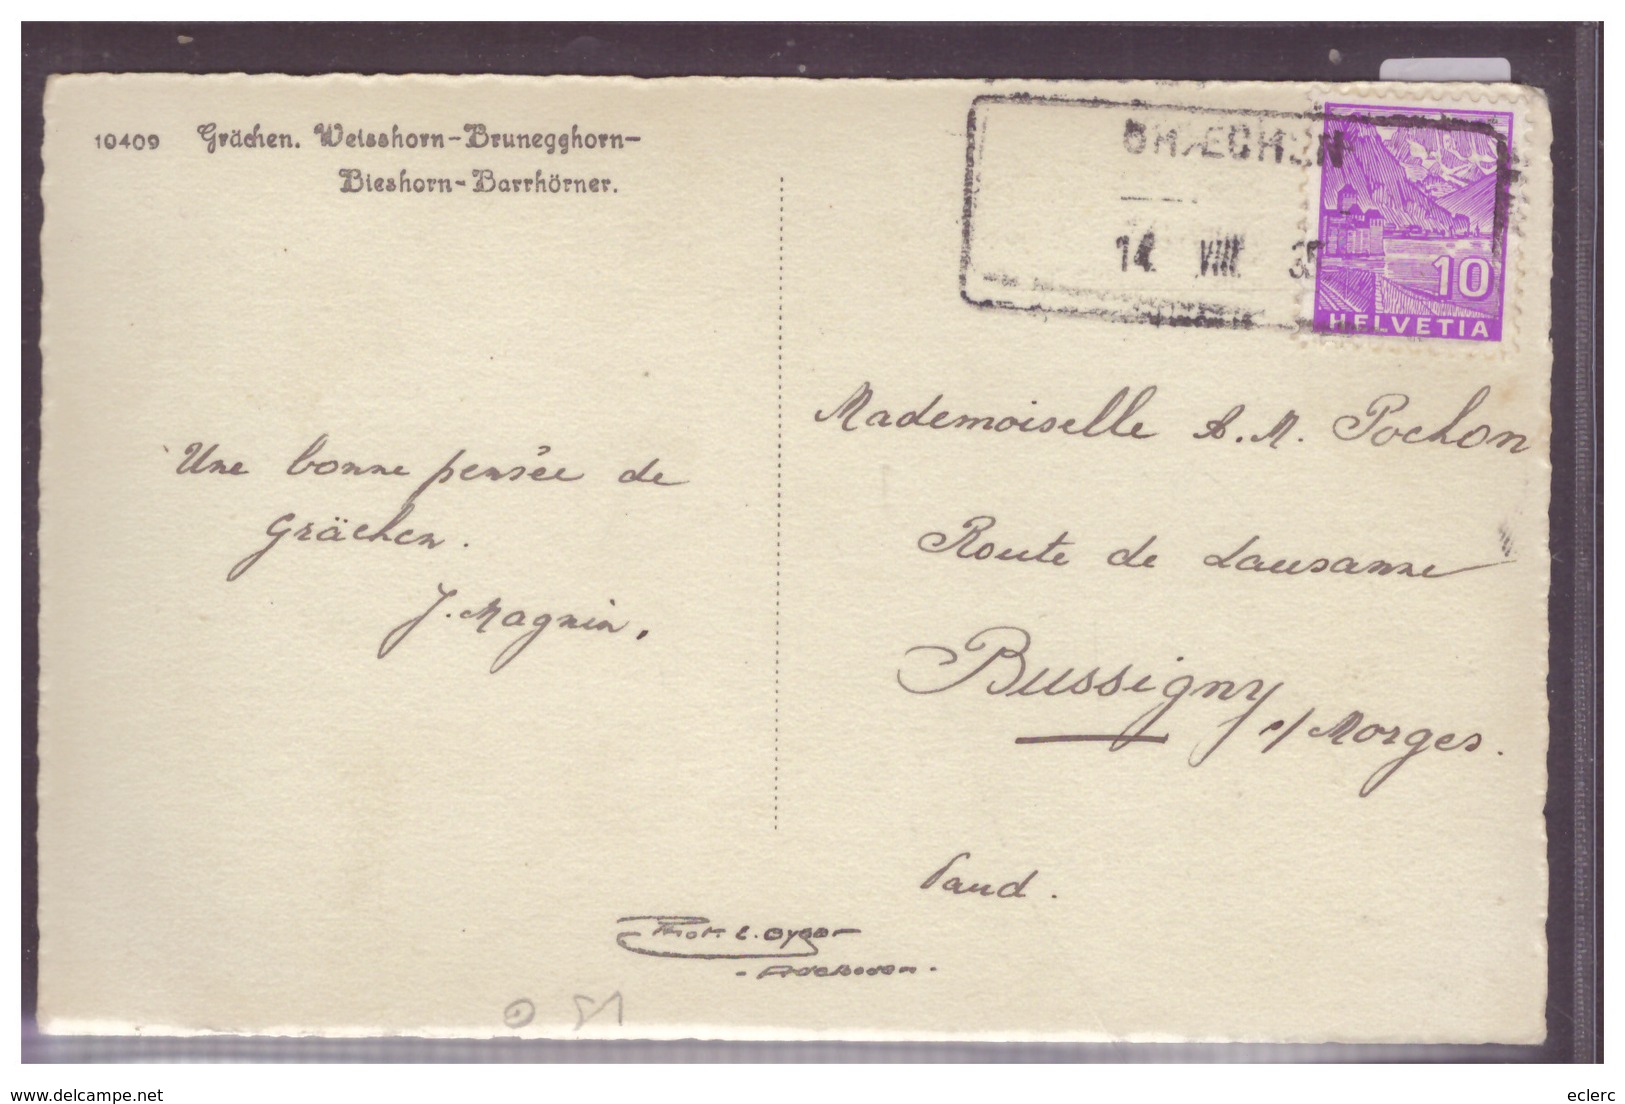 10409 Grächen. Weisshorn-Brunegghorn-
Bieshorn-Barrhörner.
14. VIII. 35
10
HELVETIA
Mademoiselle A. M. Pochon
Route de Lausanne
Bussigny s/ Morges.
Vaud.
Une bonne pensée de
Grächen.
J. Magnin.
Phot. E. Gyger
- Adelboden -
www.delcampe.net
eclerc